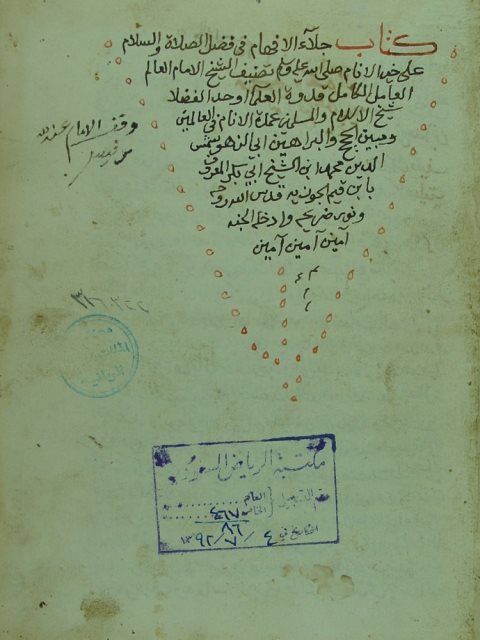 كتاب جلآء الافهام في فضل الصلاة والسلام
على خير الانام صلى الله عليه وسلم تصنيف الشيخ الامام العالم
العامل الكامل قدوة العلمآ اوحد الفضلا
شيخ الاسلام والمسلمين عمدة الانام في العالمين
ومبين الحجج والبراهين ابي الشمس
الدين محمد ابن الشيخ ابي بكر المعروف
بابن قيم الجوزيه قدس الله روحه
ونور ضريحه وادخله الجنه
آمين آمين آمين
وقف الامام عبد الله
بن فيصل
مكتبة الرياض السعودية
رقم التسجيل العام
الخاص ٤٦٧
٨٦
التاريخ في ٤ / ٧ / ١٣٩٢